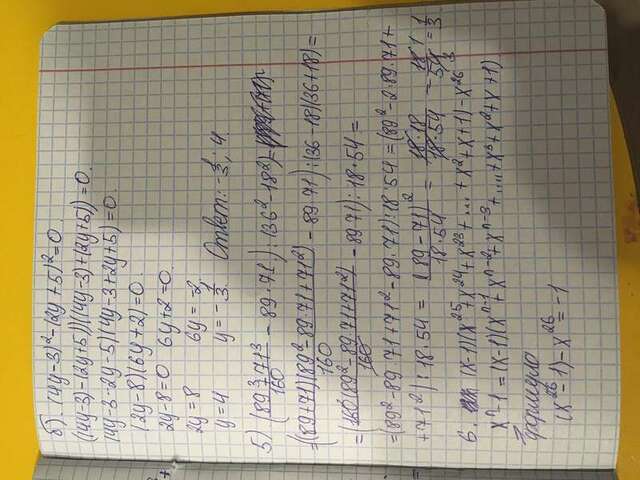 б). (4y-3)²-(2y+5)²=0
((4y-3)-(2y+5))((4y-3)+(2y+5))=0.
(4y-3-2y-5)(4y-3+2y+5)=0.
(2y-8)(6y+2)=0.
2y-8=0 6y+2=0.
2y=8 6y=-2
y=4 y=-1/3. Ответ: -1/3; 4.
5) ((89³+71³)/160 - 89·71):(36²-18²)=
=((89+71)(89²-89·71+71²)/160 - 89·71):(36-18)(36+18)=
=(160(89²-89·71+71²)/160 - 89·71):18·54=
=(89²-89·71+71²-89·71):18·54=(89²-2·89·71+
+71²):18·54=(89-71)²/18·54=18·18/18·54=18/54=1/3.
6. (x-1)(x²⁵+x²⁴+x²³+...+x²+x+1)-x²⁶
xⁿ-1=(x-1)(xⁿ⁻¹+xⁿ⁻²+xⁿ⁻³+....+x³+x²+x+1)
формула
(x²⁶-1)-x²⁶=-1